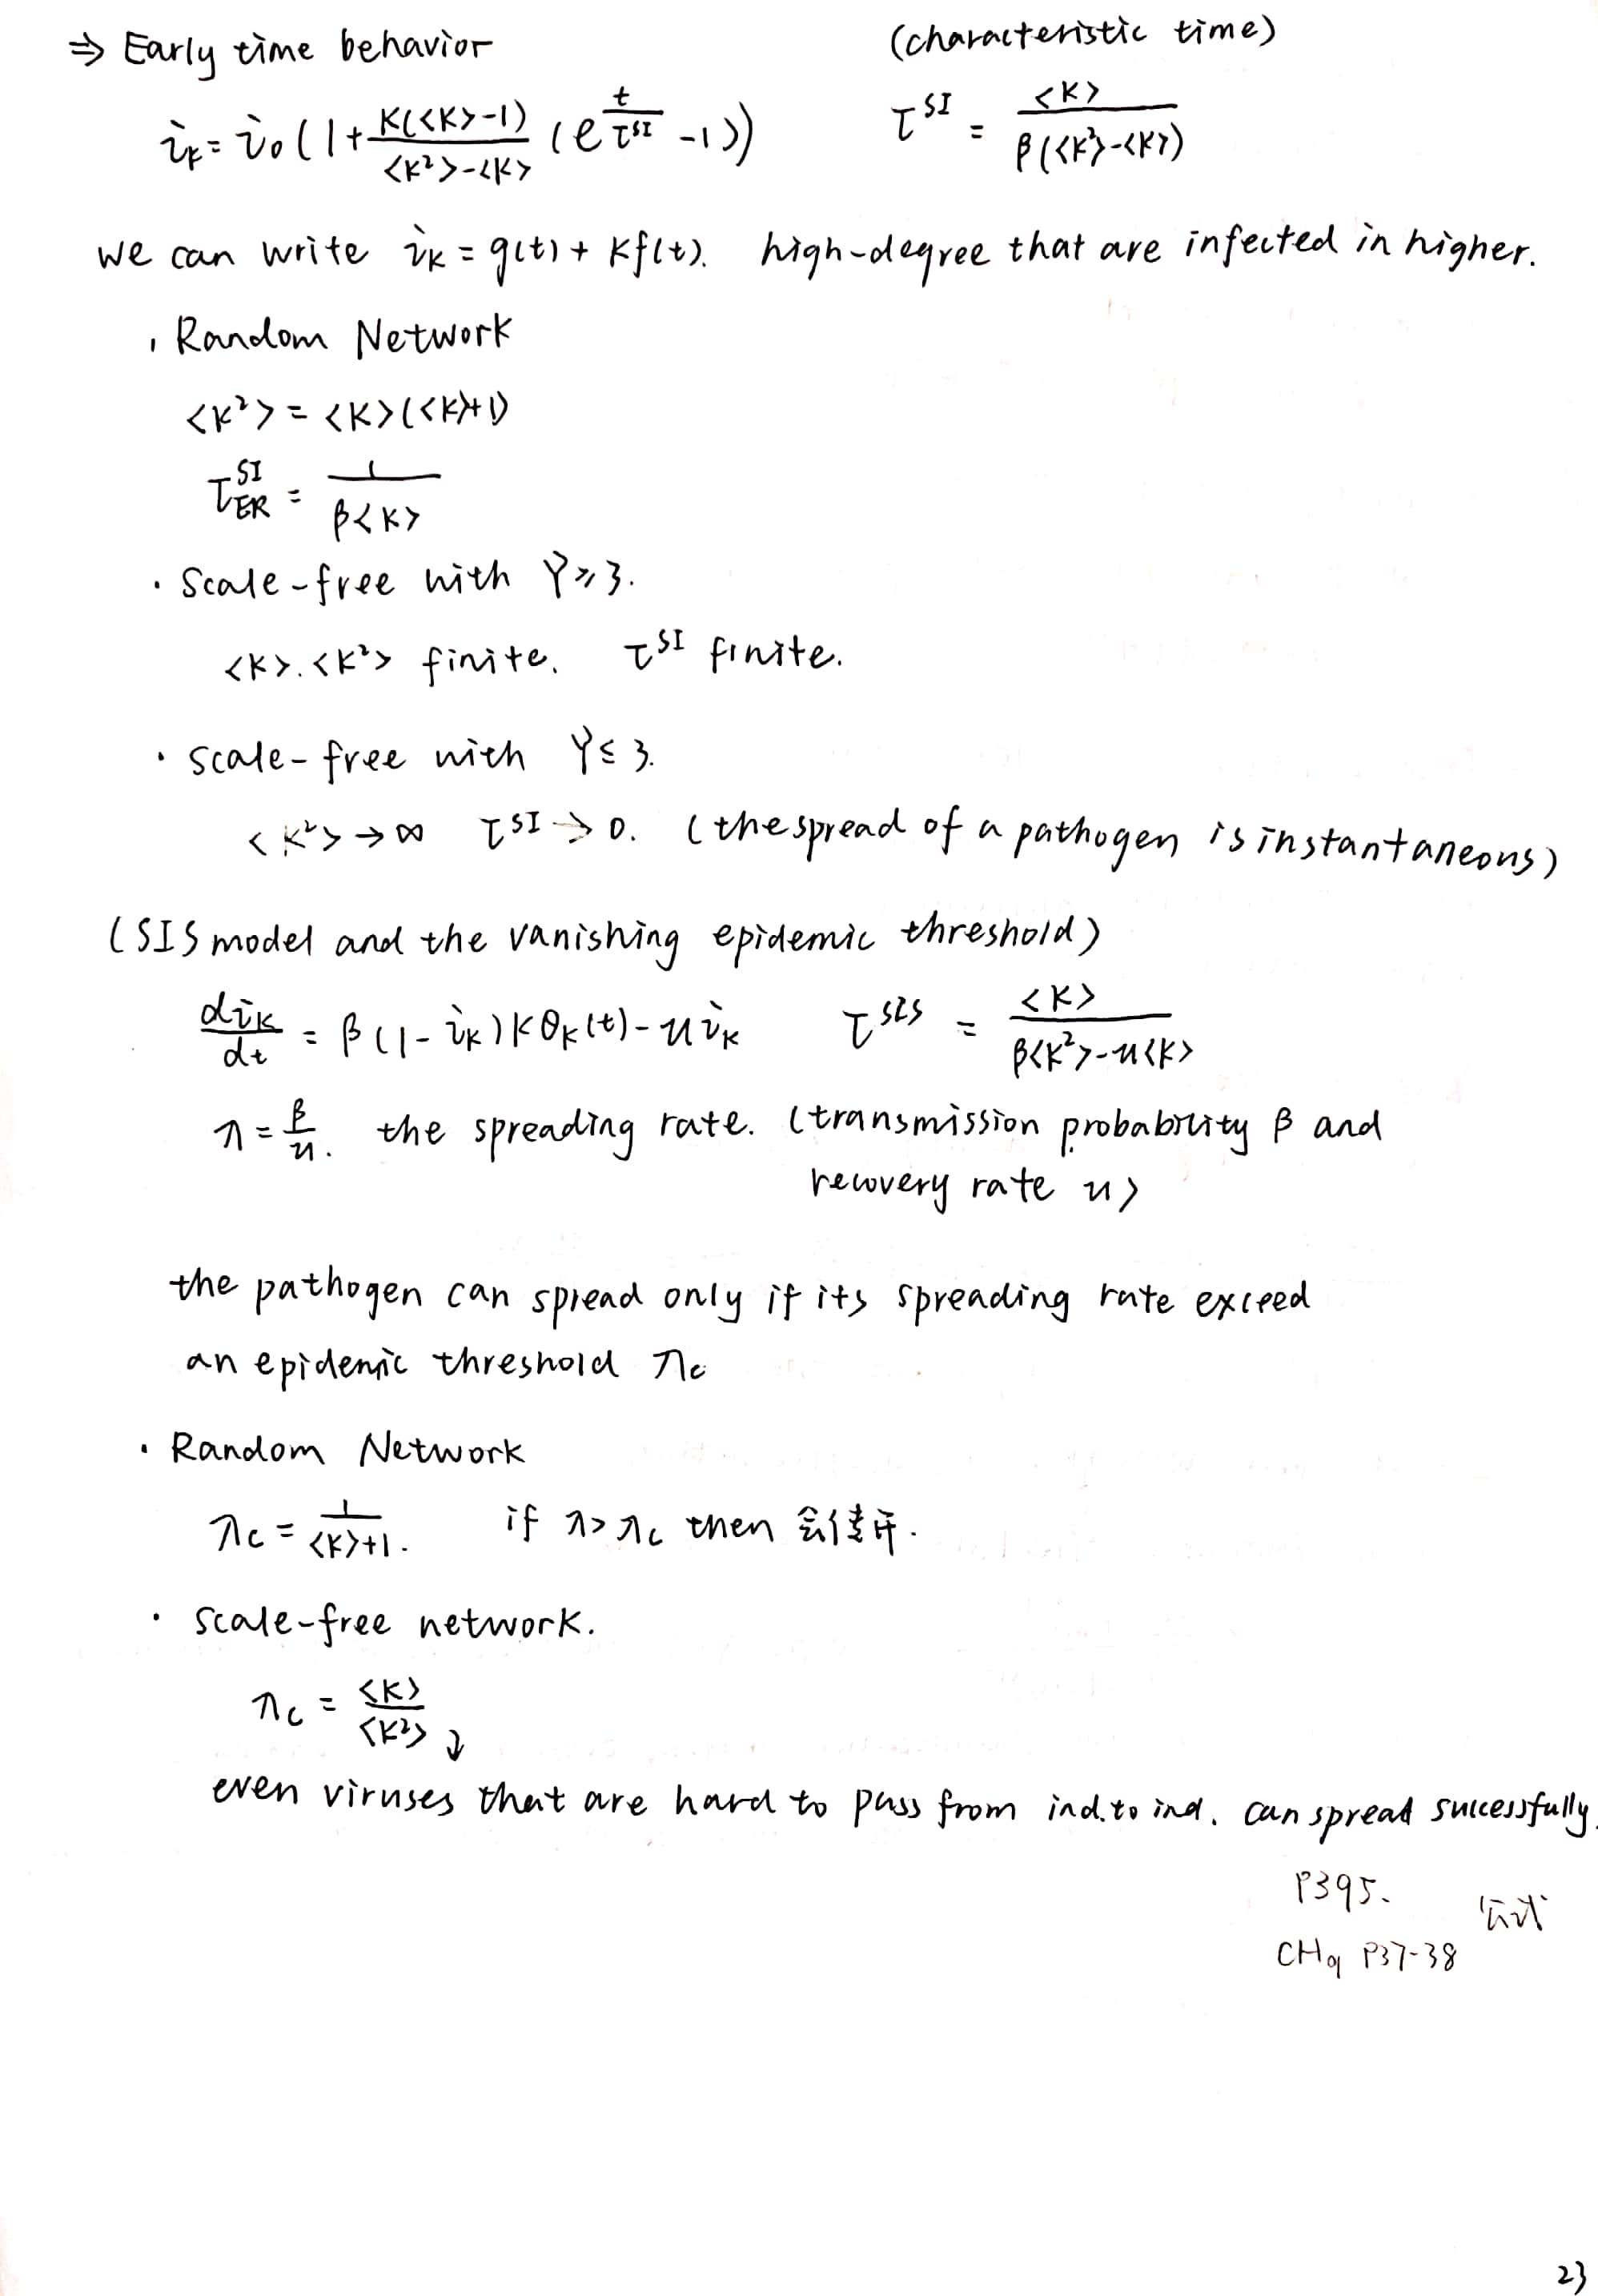 ⇒ Early time behavior (characteristic time)
i_k = i_0 (1 + K(<K>-1)/(<K²>-<K>) (e^{t/τ^{SI}} - 1)) τ^{SI} = <K>/(β(<K²>-<K>))
we can write i_k = g(t) + Kf(t). high-degree that are infected in higher.
· Random Network
<K²> = <K>(<K>+1)
τ_{ER}^{SI} = 1/(β<K>)
· Scale-free with γ ≥ 3.
<K>. <K²> finite. τ^{SI} finite.
· scale-free with γ ≤ 3.
<K²> → ∞ τ^{SI} → 0. (the spread of a pathogen is instantaneous)
(SIS model and the vanishing epidemic threshold)
di_k/dt = β(1 - i_k)Kθ_k(t) - u i_k τ^{SIS} = <K>/(β<K²>-u<K>)
λ = β/u. the spreading rate. (transmission probability β and
recovery rate u)
the pathogen can spread only if its spreading rate exceed
an epidemic threshold λc
· Random Network
λc = 1/(<K>+1). if λ > λc then 会传开.
· scale-free network.
λc = <K>/<K²> ↓
even viruses that are hard to pass from ind. to ind. can spread successfully.
P395.
公式
CH9 P37-38
23